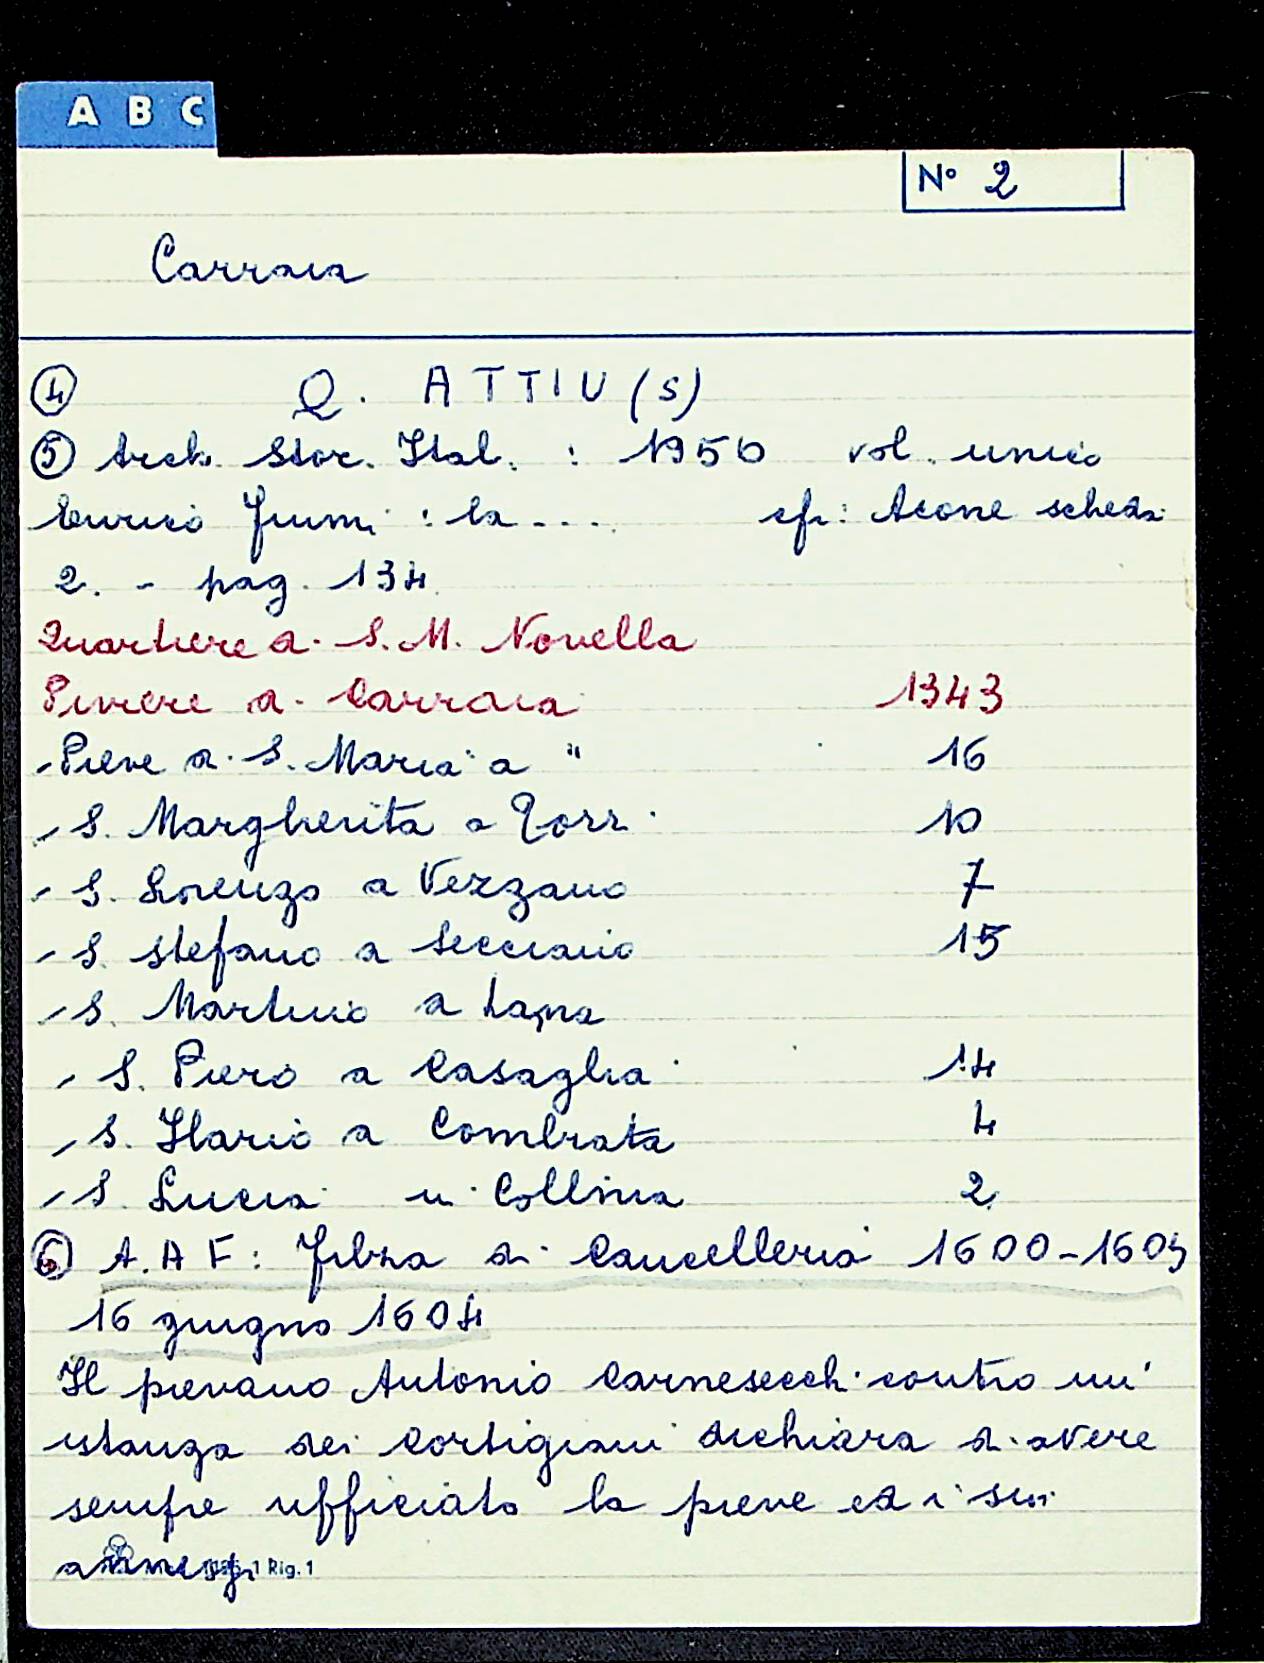 A B C
N° 2
Carraia
④ Q. ATTIU(S)
⑤ Arch. Stor. Ital. : 1950 vol. unico
Enrico Fiumi : la .... cfr: Acone scheda
2. - pag. 134
Quartiere di S. M. Novella
Piviere di Carraia 1343
- Pieve di S. Maria a " 16
- S. Margherita a Torri 10
- S. Lorenzo a Vezzano 7
- S. Stefano a Secciano 15
- S. Martino a
- S. Piero a Casaglia 14
- S. Ilario a Combiata 4
- S. Lucia in Collina 2
⑥ A. A F : Filza di Cancelleria 1600-1604
16 giugno 1604
Il pievano Antonio Carnesecchi contro un'
istanza dei Cortigiani dichiara di avere
sempre ufficiato la pieve ed i suoi
annessi 1 Rig. 1